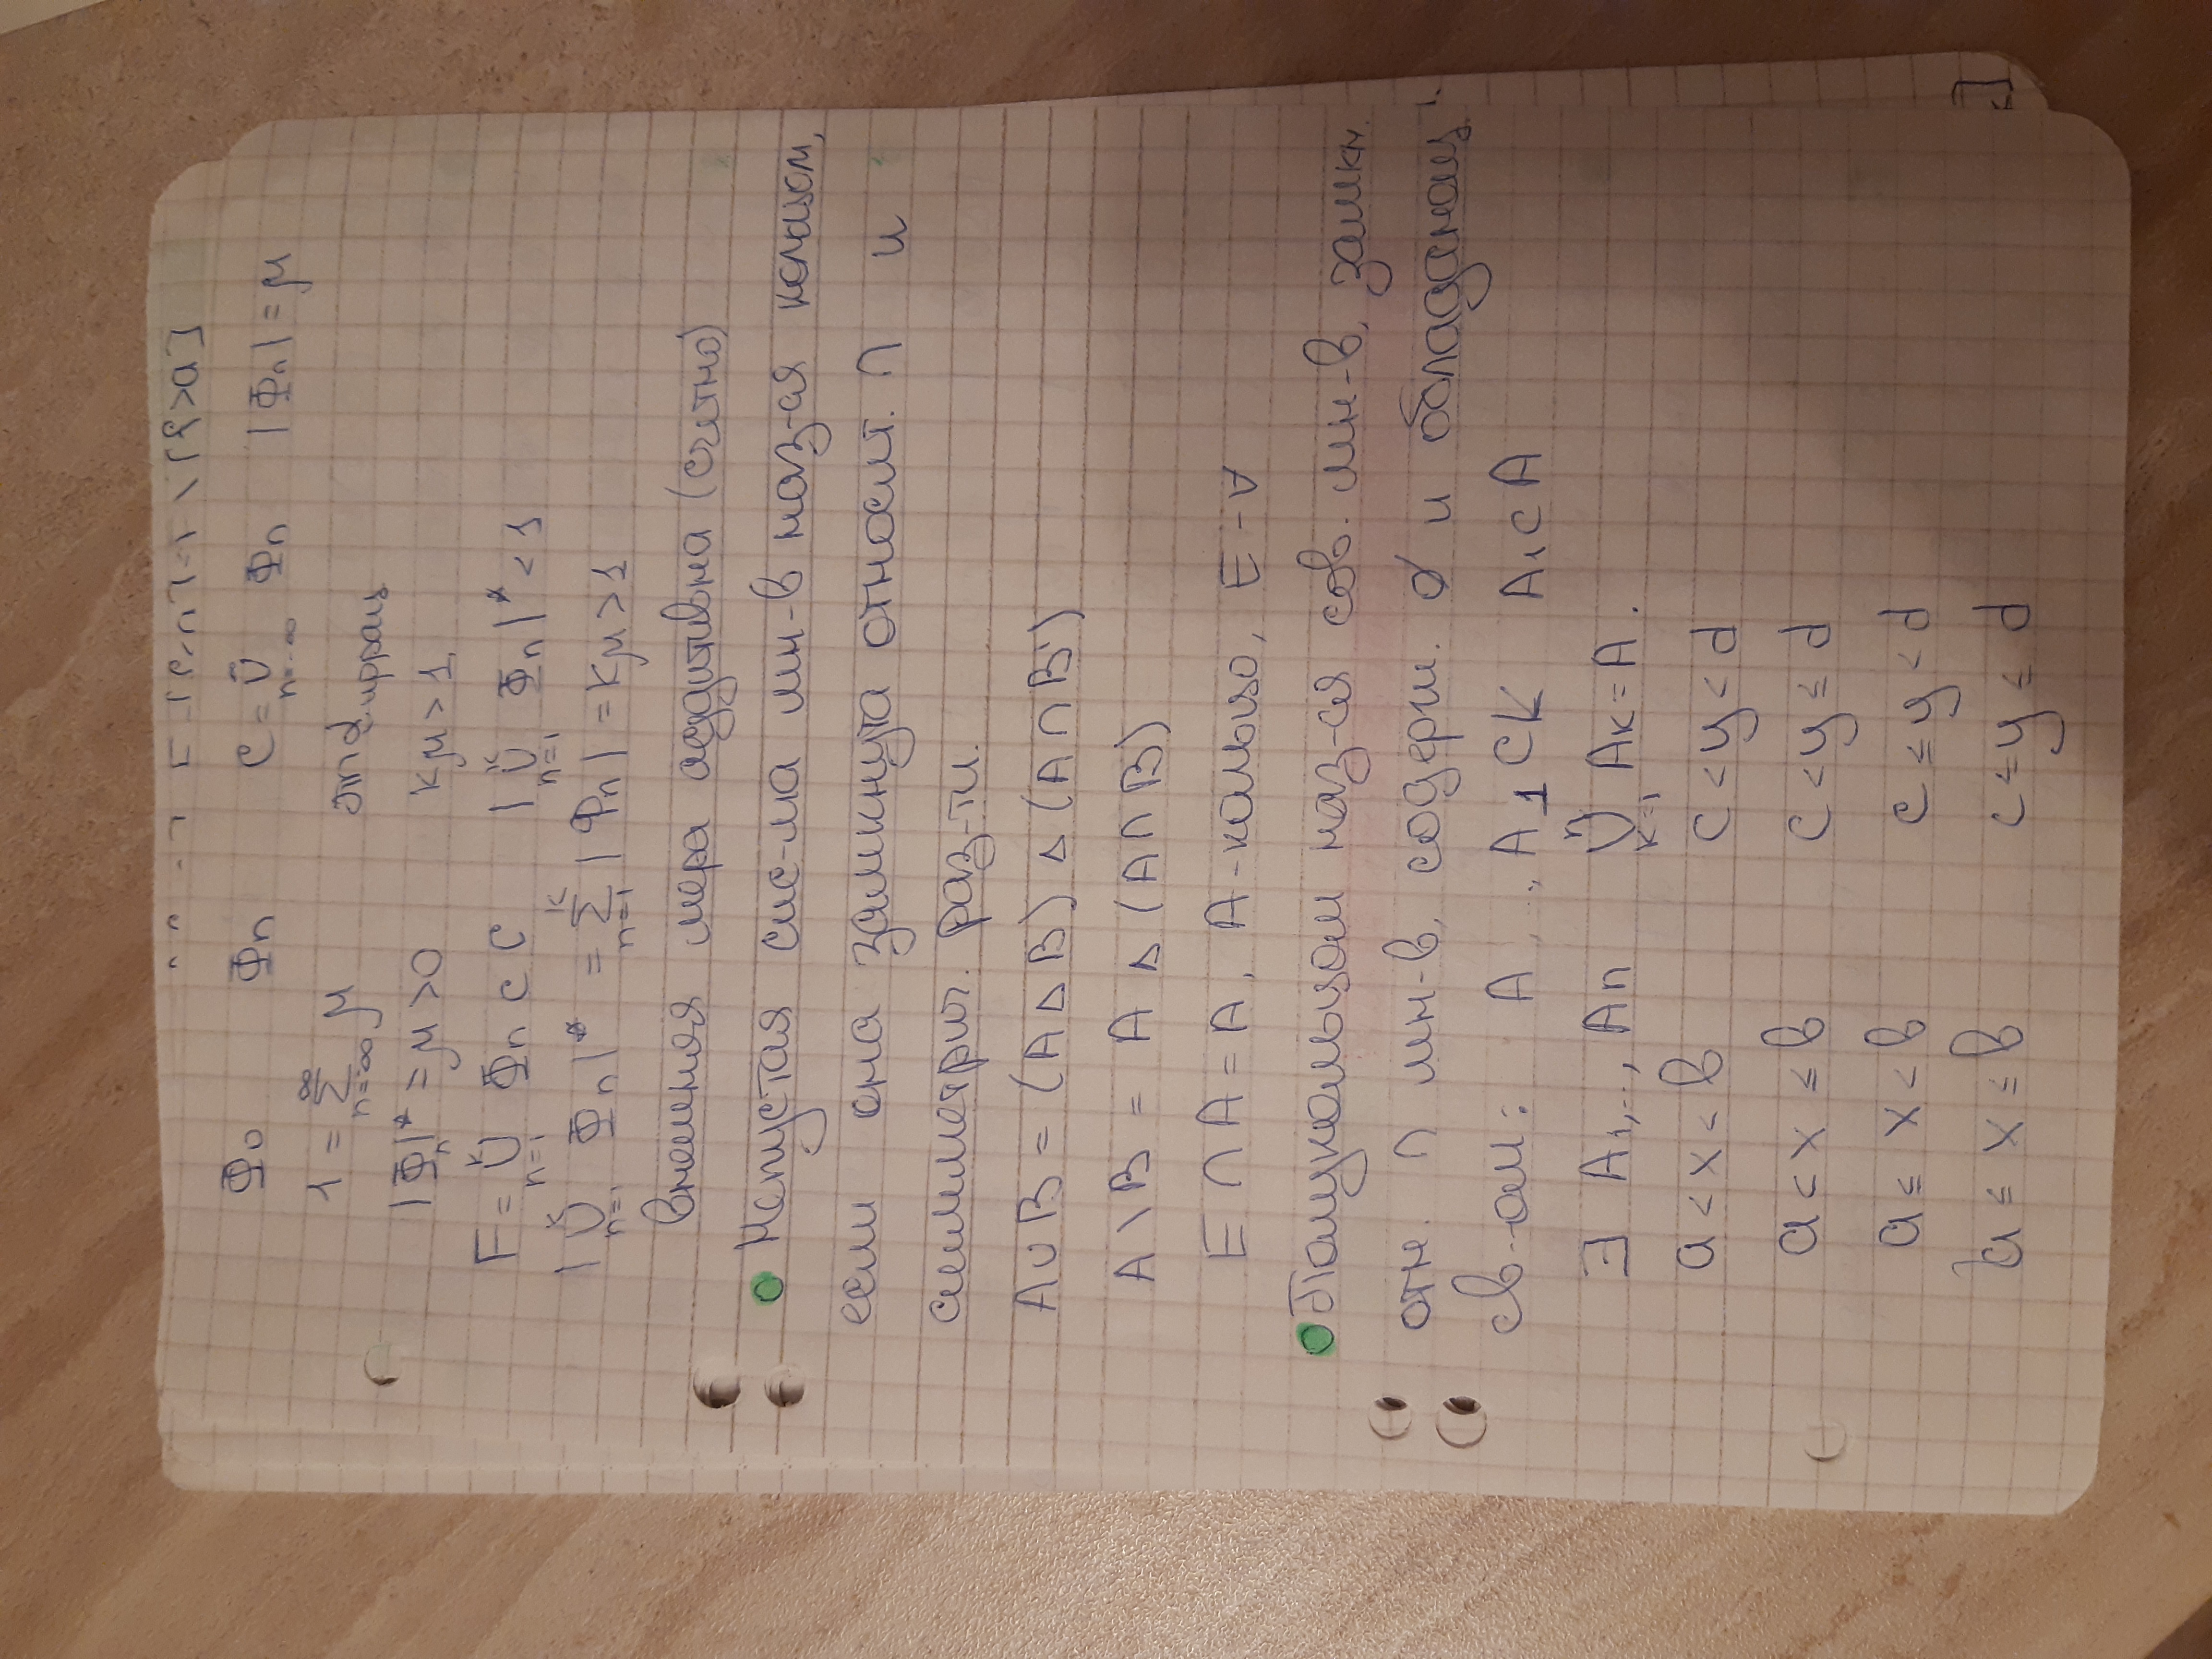 Φ₀ Φn C = ∪ n=-∞ Φn |Φn| = μ
1 = ∞ Σ n=-∞ μ
|Φn|* = μ > 0 kμ > 1
F = k ∪ n=1 Φn ⊂ C | k ∪ n=1 Φn|* < 1
| k ∪ n=1 Φn|* = k Σ n=1 |Φn| = kμ > 1
внешняя мера аддитивна (счетно)
Непустая сис-ма мн-в наз-ая кольцом,
если она замкнута относит. ∩ и
симметрич. раз-ти.
A∪B = (A Δ B) Δ (A∩B)
A \ B = A Δ (A∩B)
E ∩ A = A, A - кольцо, E - ∀
Полукольцом наз-ая сов. мн-в, замкн.
отн. ∩ мн-в, содерж. ∅ и обладающ.
св-ом: A, A₁ ⊂ K A₁ ⊂ A
∃ A₁,..., An n ∪ k=1 Ak = A.
a < x < b c < y < d
a < x ≤ b c < y ≤ d
a ≤ x < b c ≤ y < d
a ≤ x ≤ b c ≤ y ≤ d